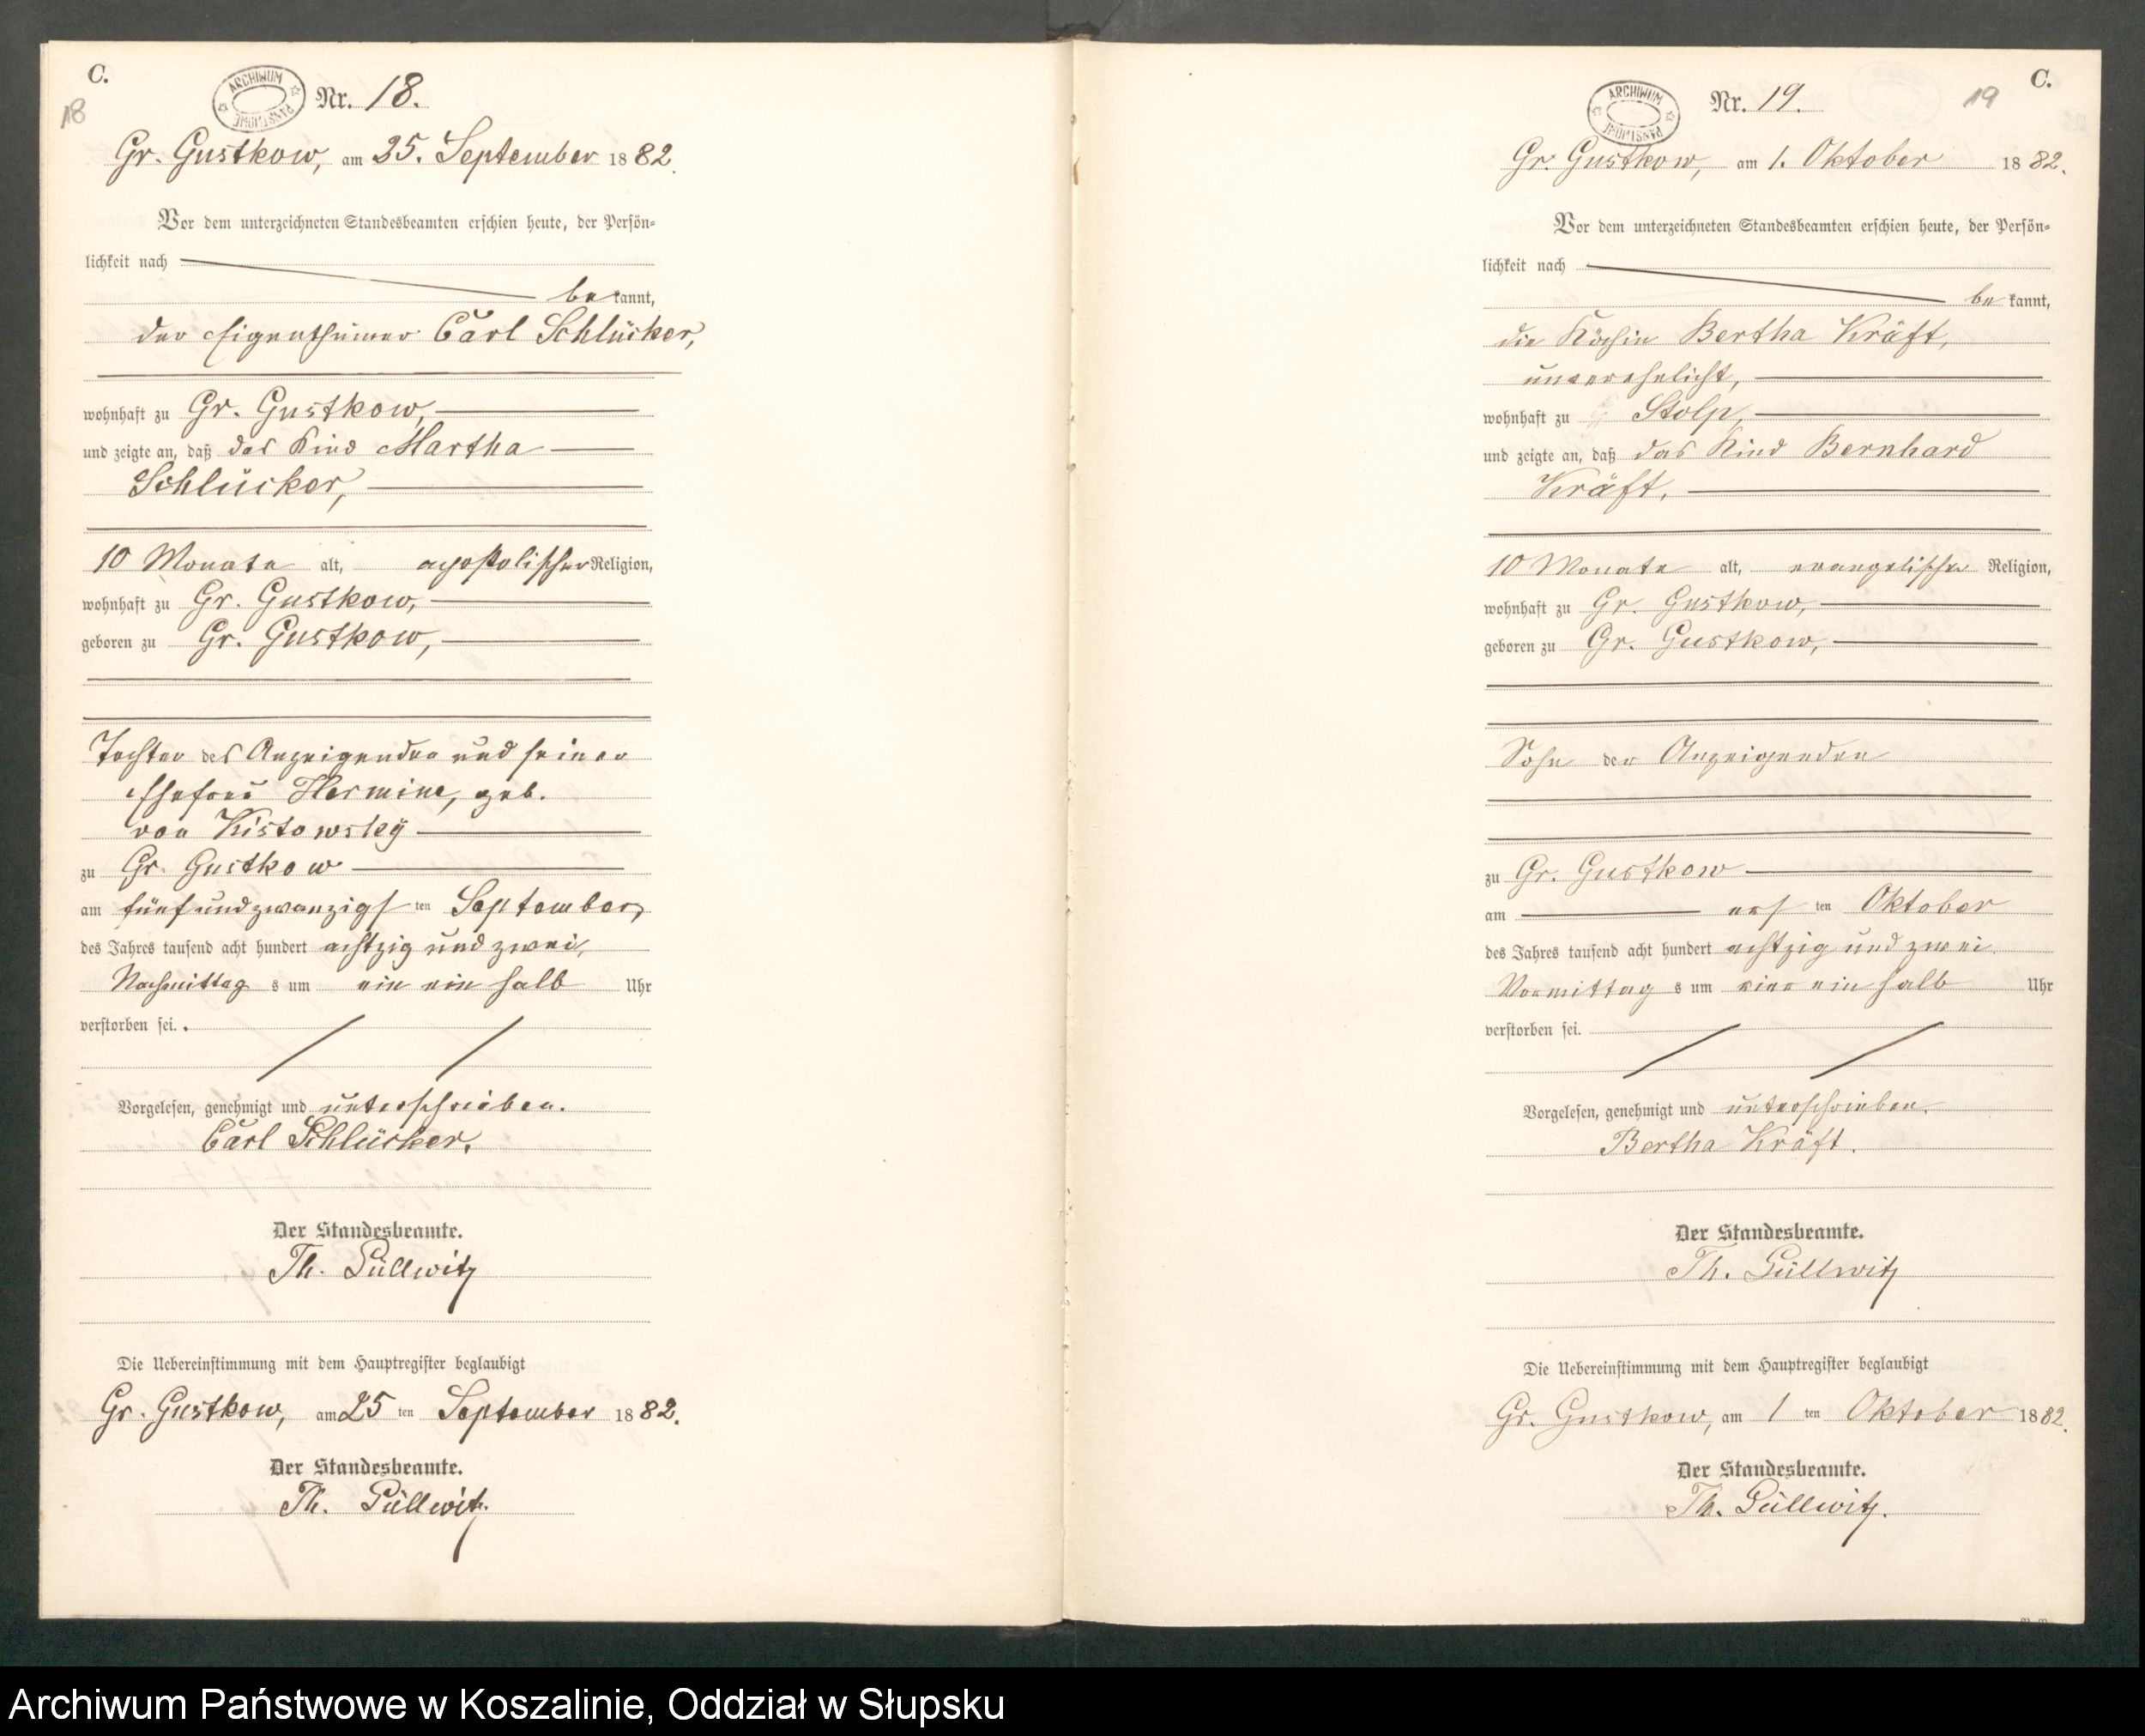 C.
18
ARCHIWUM PAŃSTWOWE
Nr. 18.
Gr. Gustkow, am 25. September 1882.
Vor dem unterzeichneten Standesbeamten erschien heute, der Persön-
lichkeit nach
be kannt,
der Eigenthümer Carl Schlücker,
wohnhaft zu Gr. Gustkow,
und zeigte an, daß das Kind Martha
Schlücker,
10 Monate alt, apostolischer Religion,
wohnhaft zu Gr. Gustkow,
geboren zu Gr. Gustkow,
Tochter des Anzeigenden und seiner
Ehefrau Hermine, geb.
von Kistowsky
zu Gr. Gustkow
am fünfundzwanzigsten September,
des Jahres tausend acht hundert achtzig und zwei,
Nachmittags um ein ein halb Uhr
verstorben sei.
Vorgelesen, genehmigt und unterschrieben.
Carl Schlücker.
Der Standesbeamte.
Th. Püllwitz
Die Uebereinstimmung mit dem Hauptregister beglaubigt
Gr. Gustkow, am 25 ten September 1882.
Der Standesbeamte.
Th. Püllwitz.
C.
19
ARCHIWUM PAŃSTWOWE
Nr. 19.
Gr. Gustkow, am 1. Oktober 1882.
Vor dem unterzeichneten Standesbeamten erschien heute, der Persön-
lichkeit nach
be kannt,
die Köchin Bertha Kräft,
unverehelicht,
wohnhaft zu Stolp,
und zeigte an, daß das Kind Bernhard
Kräft,
10 Monate alt, evangelischer Religion,
wohnhaft zu Gr. Gustkow,
geboren zu Gr. Gustkow,
Sohn der Anzeigenden
zu Gr. Gustkow
am ersten Oktober
des Jahres tausend acht hundert achtzig und zwei
Vormittags um vier ein halb Uhr
verstorben sei.
Vorgelesen, genehmigt und unterschrieben.
Bertha Kräft.
Der Standesbeamte.
Th. Püllwitz
Die Uebereinstimmung mit dem Hauptregister beglaubigt
Gr. Gustkow, am 1 ten Oktober 1882.
Der Standesbeamte.
Th. Püllwitz.
Archiwum Państwowe w Koszalinie, Oddział w Słupsku